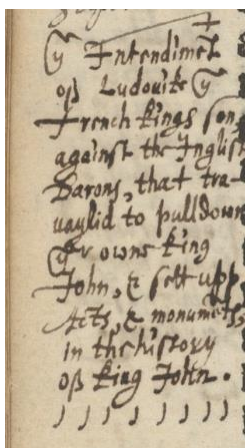 ye Intendimēt
off Ludovike ye
french kings son,
against the Inglish
Barons, that tra-
vaylid to pull down
yer owne king
John, & sett upp.
Acts, & monumēts,
in the history
off king John.